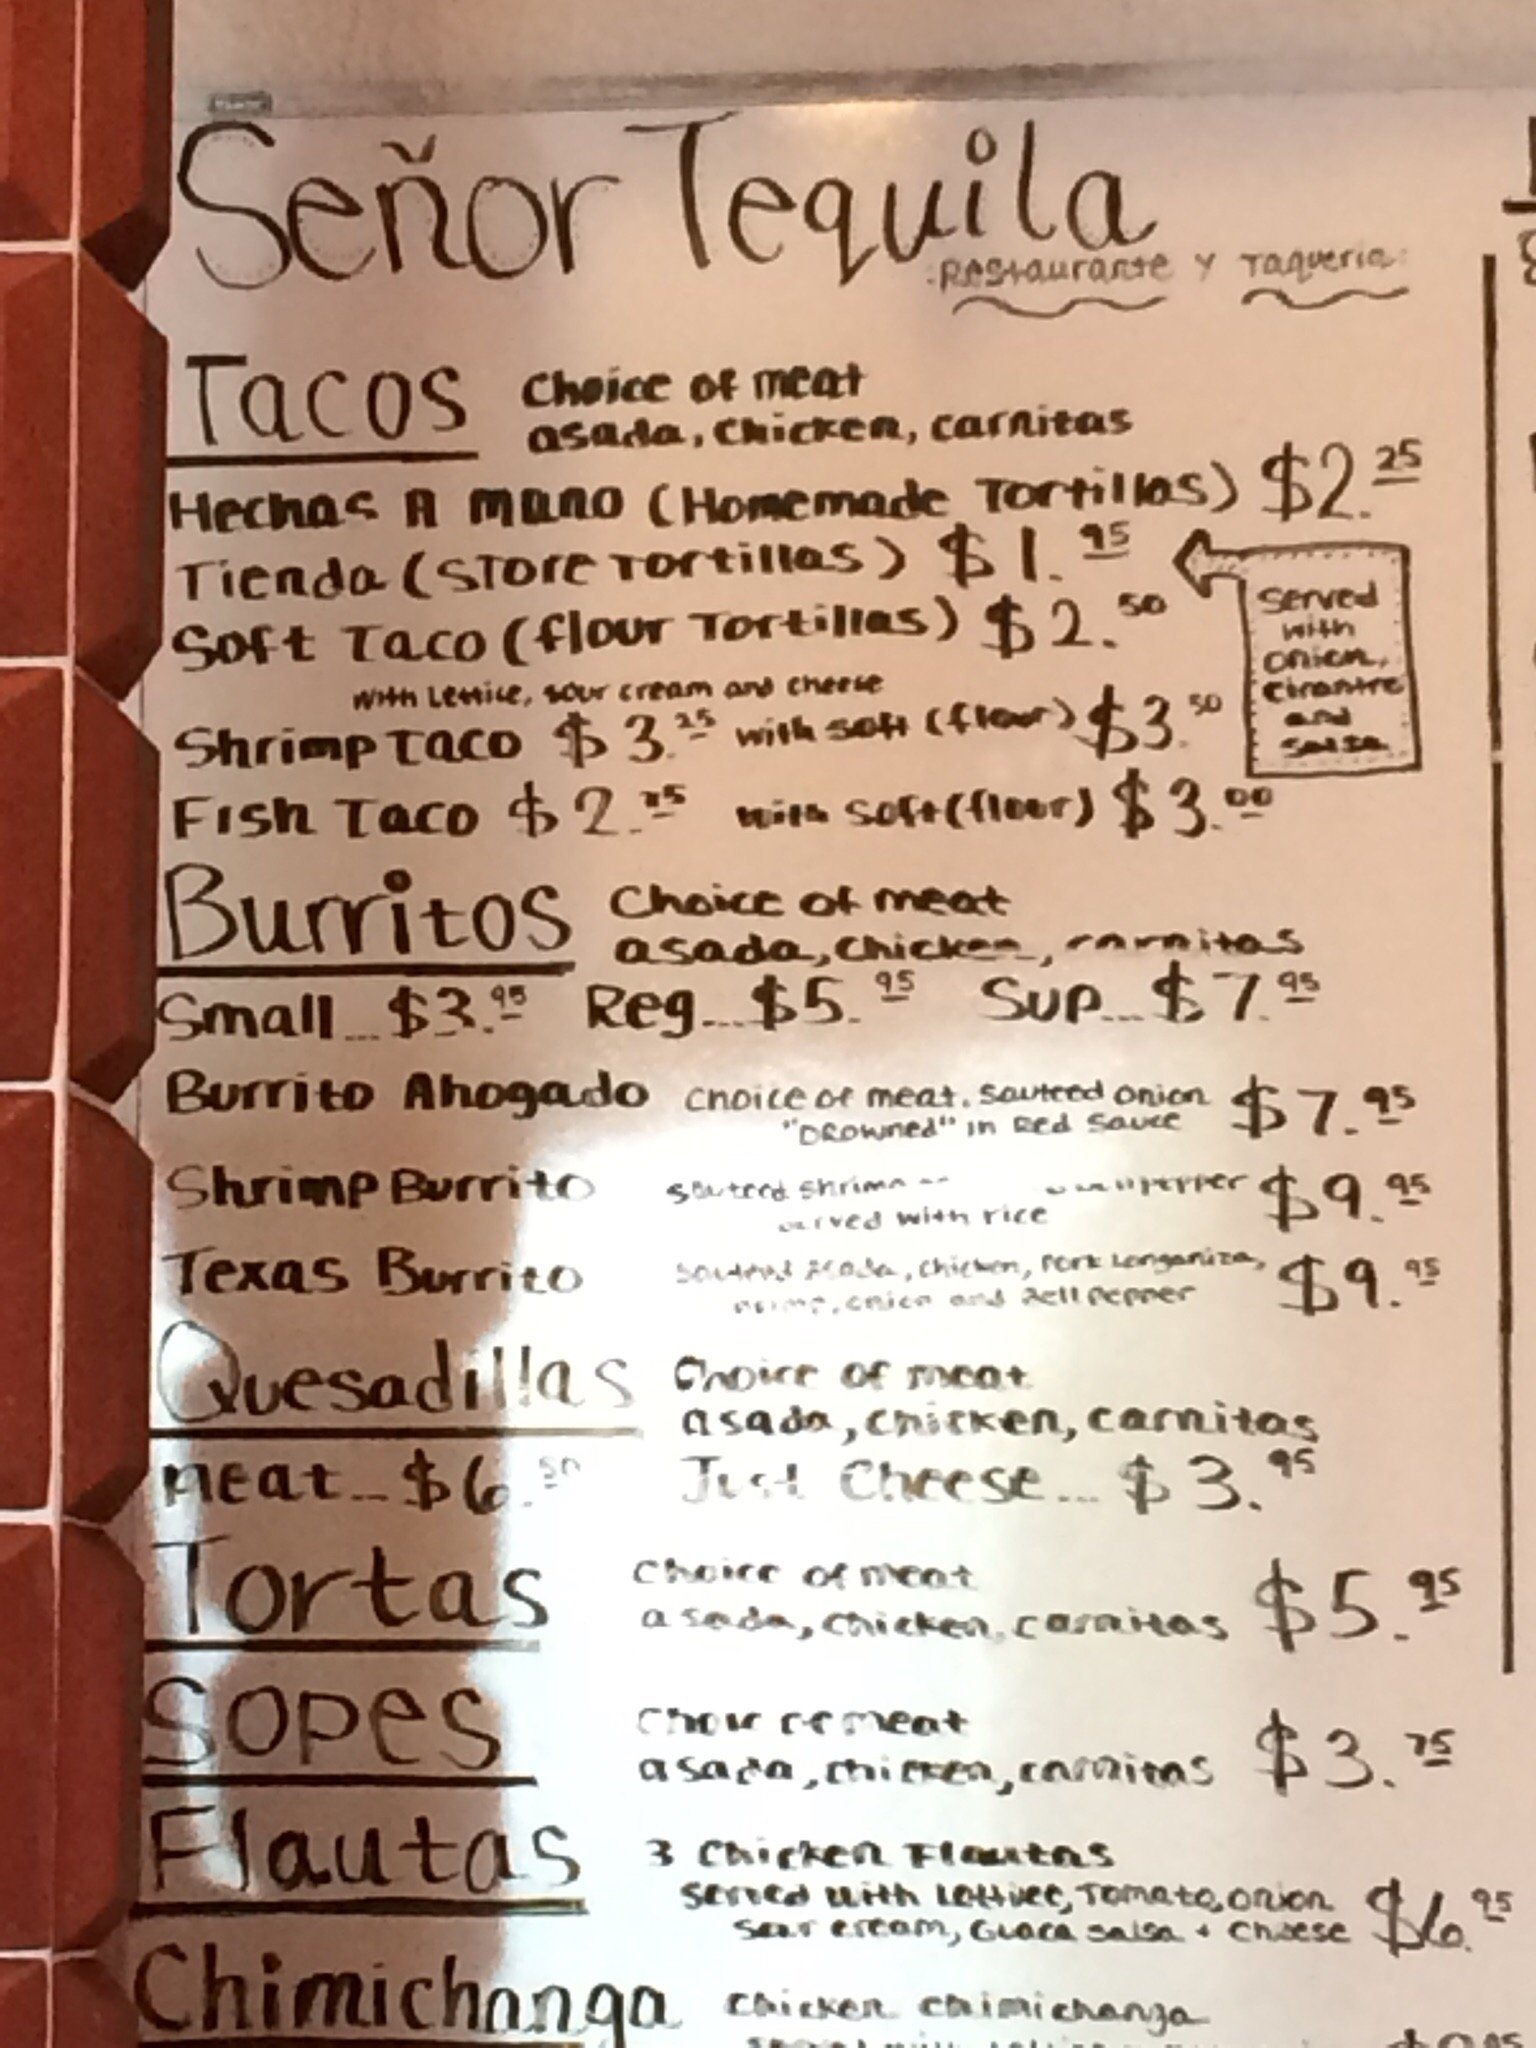 Señor Tequila
Restaurante y Taqueria
Tacos Choice of meat
asada, chicken, carnitas
Hechas A mano (Homemade Tortillas) $2.25
Tienda (Store Tortillas) $1.95
Served
with
onion,
and
salsa
Soft Taco (flour Tortillas) $2.50
with Lettice, sour cream and cheese
Shrimp Taco $3.25 with soft (flour) $3.50
Fish Taco $2. with soft (flour) $3.00
Burritos Choice of meat
asada, chicken, carnitas
Small... $3.95 Reg... $5.95 Sup... $7.95
Burrito Ahogado choice of meat, sauteed onion $7.95
"Drowned" in Red Sauce
Shrimp Burrito sauteed shrimp pepper $9.95
served with rice
Texas Burrito sauteed Asada, chicken, Pork Longaniza, $9.95
onion and Bell pepper
Quesadillas Choice of meat
asada, chicken, carnitas
Meat... $6.50 Just Cheese... $3.95
Tortas Choice of meat
asada, chicken, carnitas $5.95
Sopes Choice of meat
asada, chicken, carnitas $3.75
Flautas 3 Chicken Flautas
Served with Lettuce, Tomato, onion $6.95
sour cream, Guaca salsa + Cheese
Chimichanga chicken chimichanga